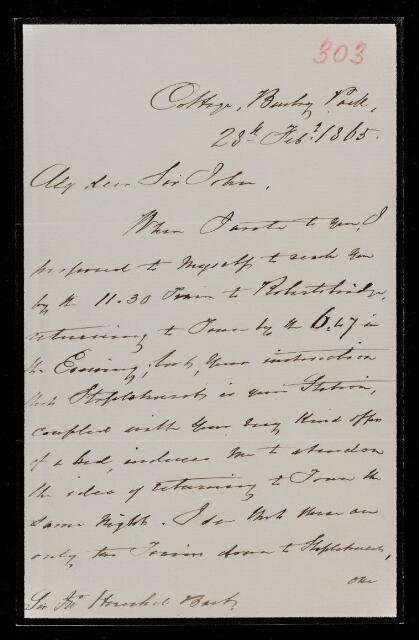 303
Cottage, Bushy Park,
28th Feby. 1865.
My dear Sir John,
When I wrote to you, I
proposed to myself to reach you
by the 11.30 Train to Robertsbridge,
returning to Town by the 6.47 in
the Evening; but, your instruction
that Staplehurst is your Station,
coupled with your very kind offer
of a bed, induces me to abandon
the idea of returning to Town the
same night. I see that there are
only two Trains down to Staplehurst,
one
Sir Jno. Herschel Bart.